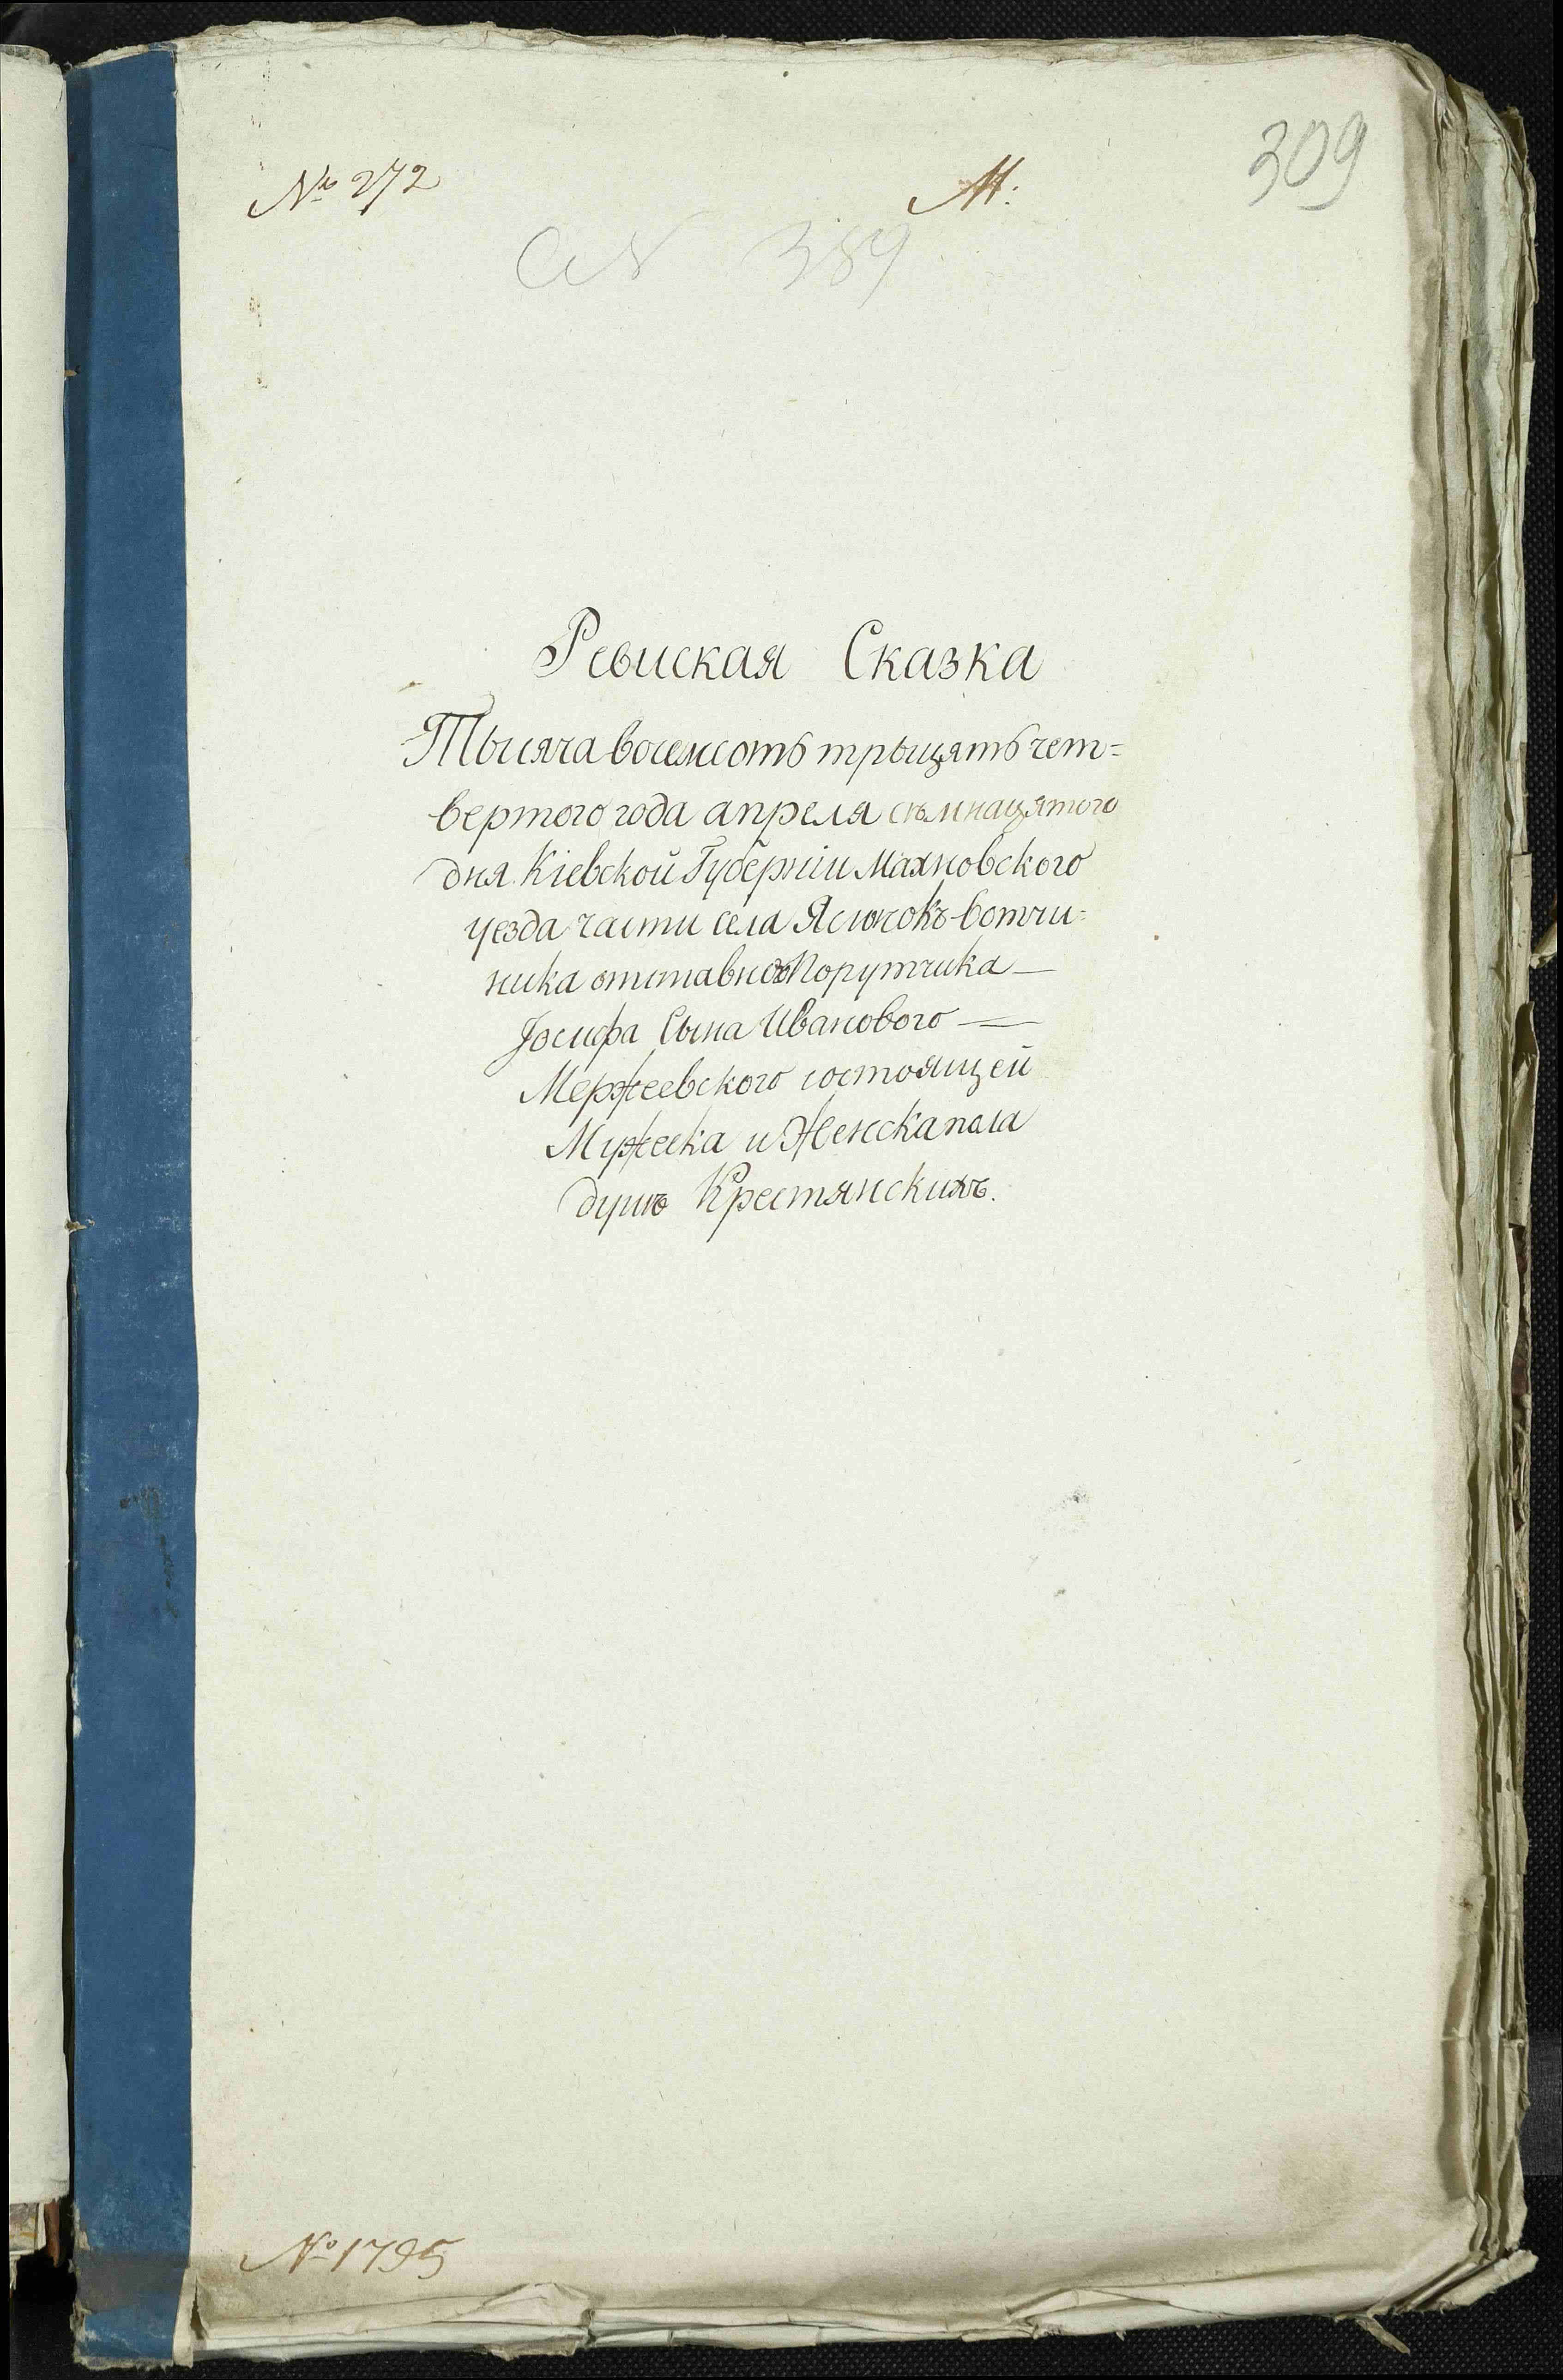 № 272
М:
309
384
Ревиская Сказка
Тысяча восемсотъ трыцятъ чет=
вертого года апреля съмнацятого
дня Кіевской Губерніи Махновского
уезда части села Яслюнокъ вотчи=
ника отставного Порутчика —
Іосифа Сына Иванового —
Мержеевского состоящей
Мужеска и Женска пола
душъ Крестянскихъ.
№ 1795